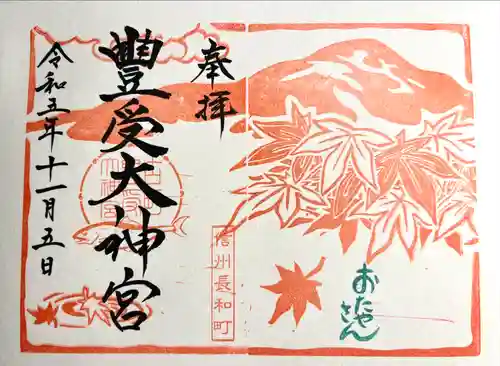 奉拝
豐受大神宮
令和五年十一月五日
信州長和町
おたやさん